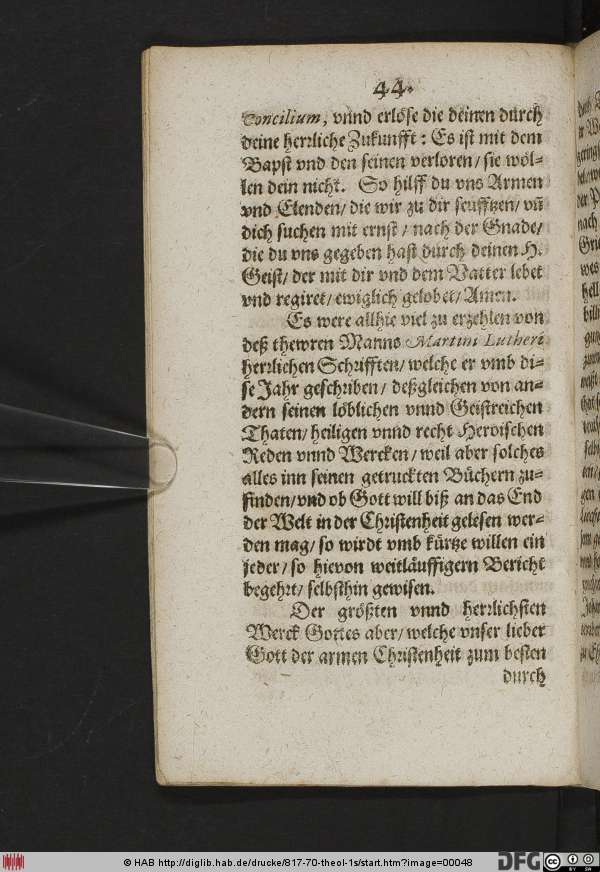 44.
Concilium, vnnd erlöse die deinen durch
deine herrliche Zukunfft: Es ist mit dem
Bapst vnd den seinen verloren/ sie wöl-
len dein nicht. So hilff du vns Armen
vnd Elenden/ die wir zu dir seufftzen/ vñ
dich suchen mit ernst/ nach der Gnade/
die du vns gegeben hast durch deinen H.
Geist/ der mit dir vnd dem Vatter lebet
vnd regiret/ ewiglich gelobet/ Amen.
Es were allhie viel zu erzehlen von
deß thewren Manns Martini Lutheri
herrlichen Schrifften/ welche er vmb di-
se Jahr geschriben/ deßgleichen von an-
dern seinen löblichen vnnd Geistreichen
Thaten/ heiligen vnnd recht Heroischen
Reden vnnd Wercken/ weil aber solches
alles inn seinen getruckten Büchern zu-
finden/ vnd ob Gott will biß an das End
der Welt in der Christenheit gelesen wer-
den mag/ so wirdt vmb kürtze willen ein
jeder/ so hievon weitläuffigern Bericht
begehrt/ selbsthin gewisen.
Der größten vnnd herrlichsten
Werck Gottes aber/ welche vnser lieber
Gott der armen Christenheit zum besten
durch
© HAB http://diglib.hab.de/drucke/817-70-theol-1s/start.htm?image=00048
DFG
cc BY SA